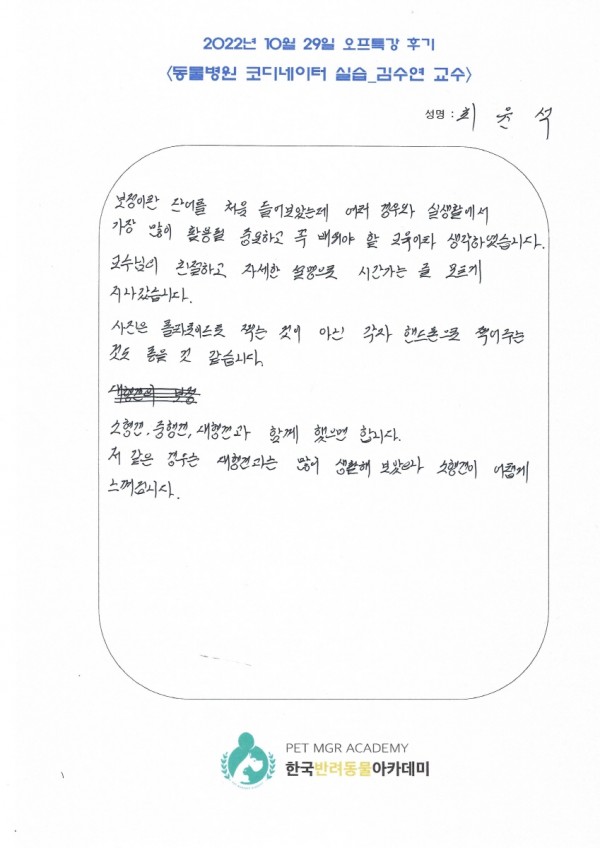 2022년 10월 29일 오프특강 후기
<동물병원 코디네이터 실습_김수연 교수>
성명 : 최윤석
보정이란 단어를 처음 들어보았는데 여러 경우와 실생활에서
가장 많이 활용될 중요하고 꼭 배워야 할 교육이라 생각하였습니다.
교수님의 친절하고 자세한 설명으로 시간가는 줄 모르게
지나갔습니다.
사진은 폴라로이드로 찍는 것이 아닌 각자 핸드폰으로 찍어주는
것도 좋을 것 같습니다.
대형견의 보정
소형견, 중형견, 대형견과 함께 했으면 합니다.
저 같은 경우는 대형견과는 많이 생활해 보았으나 소형견이 어렵게
느껴집니다.
PET MGR ACADEMY
한국반려동물아카데미